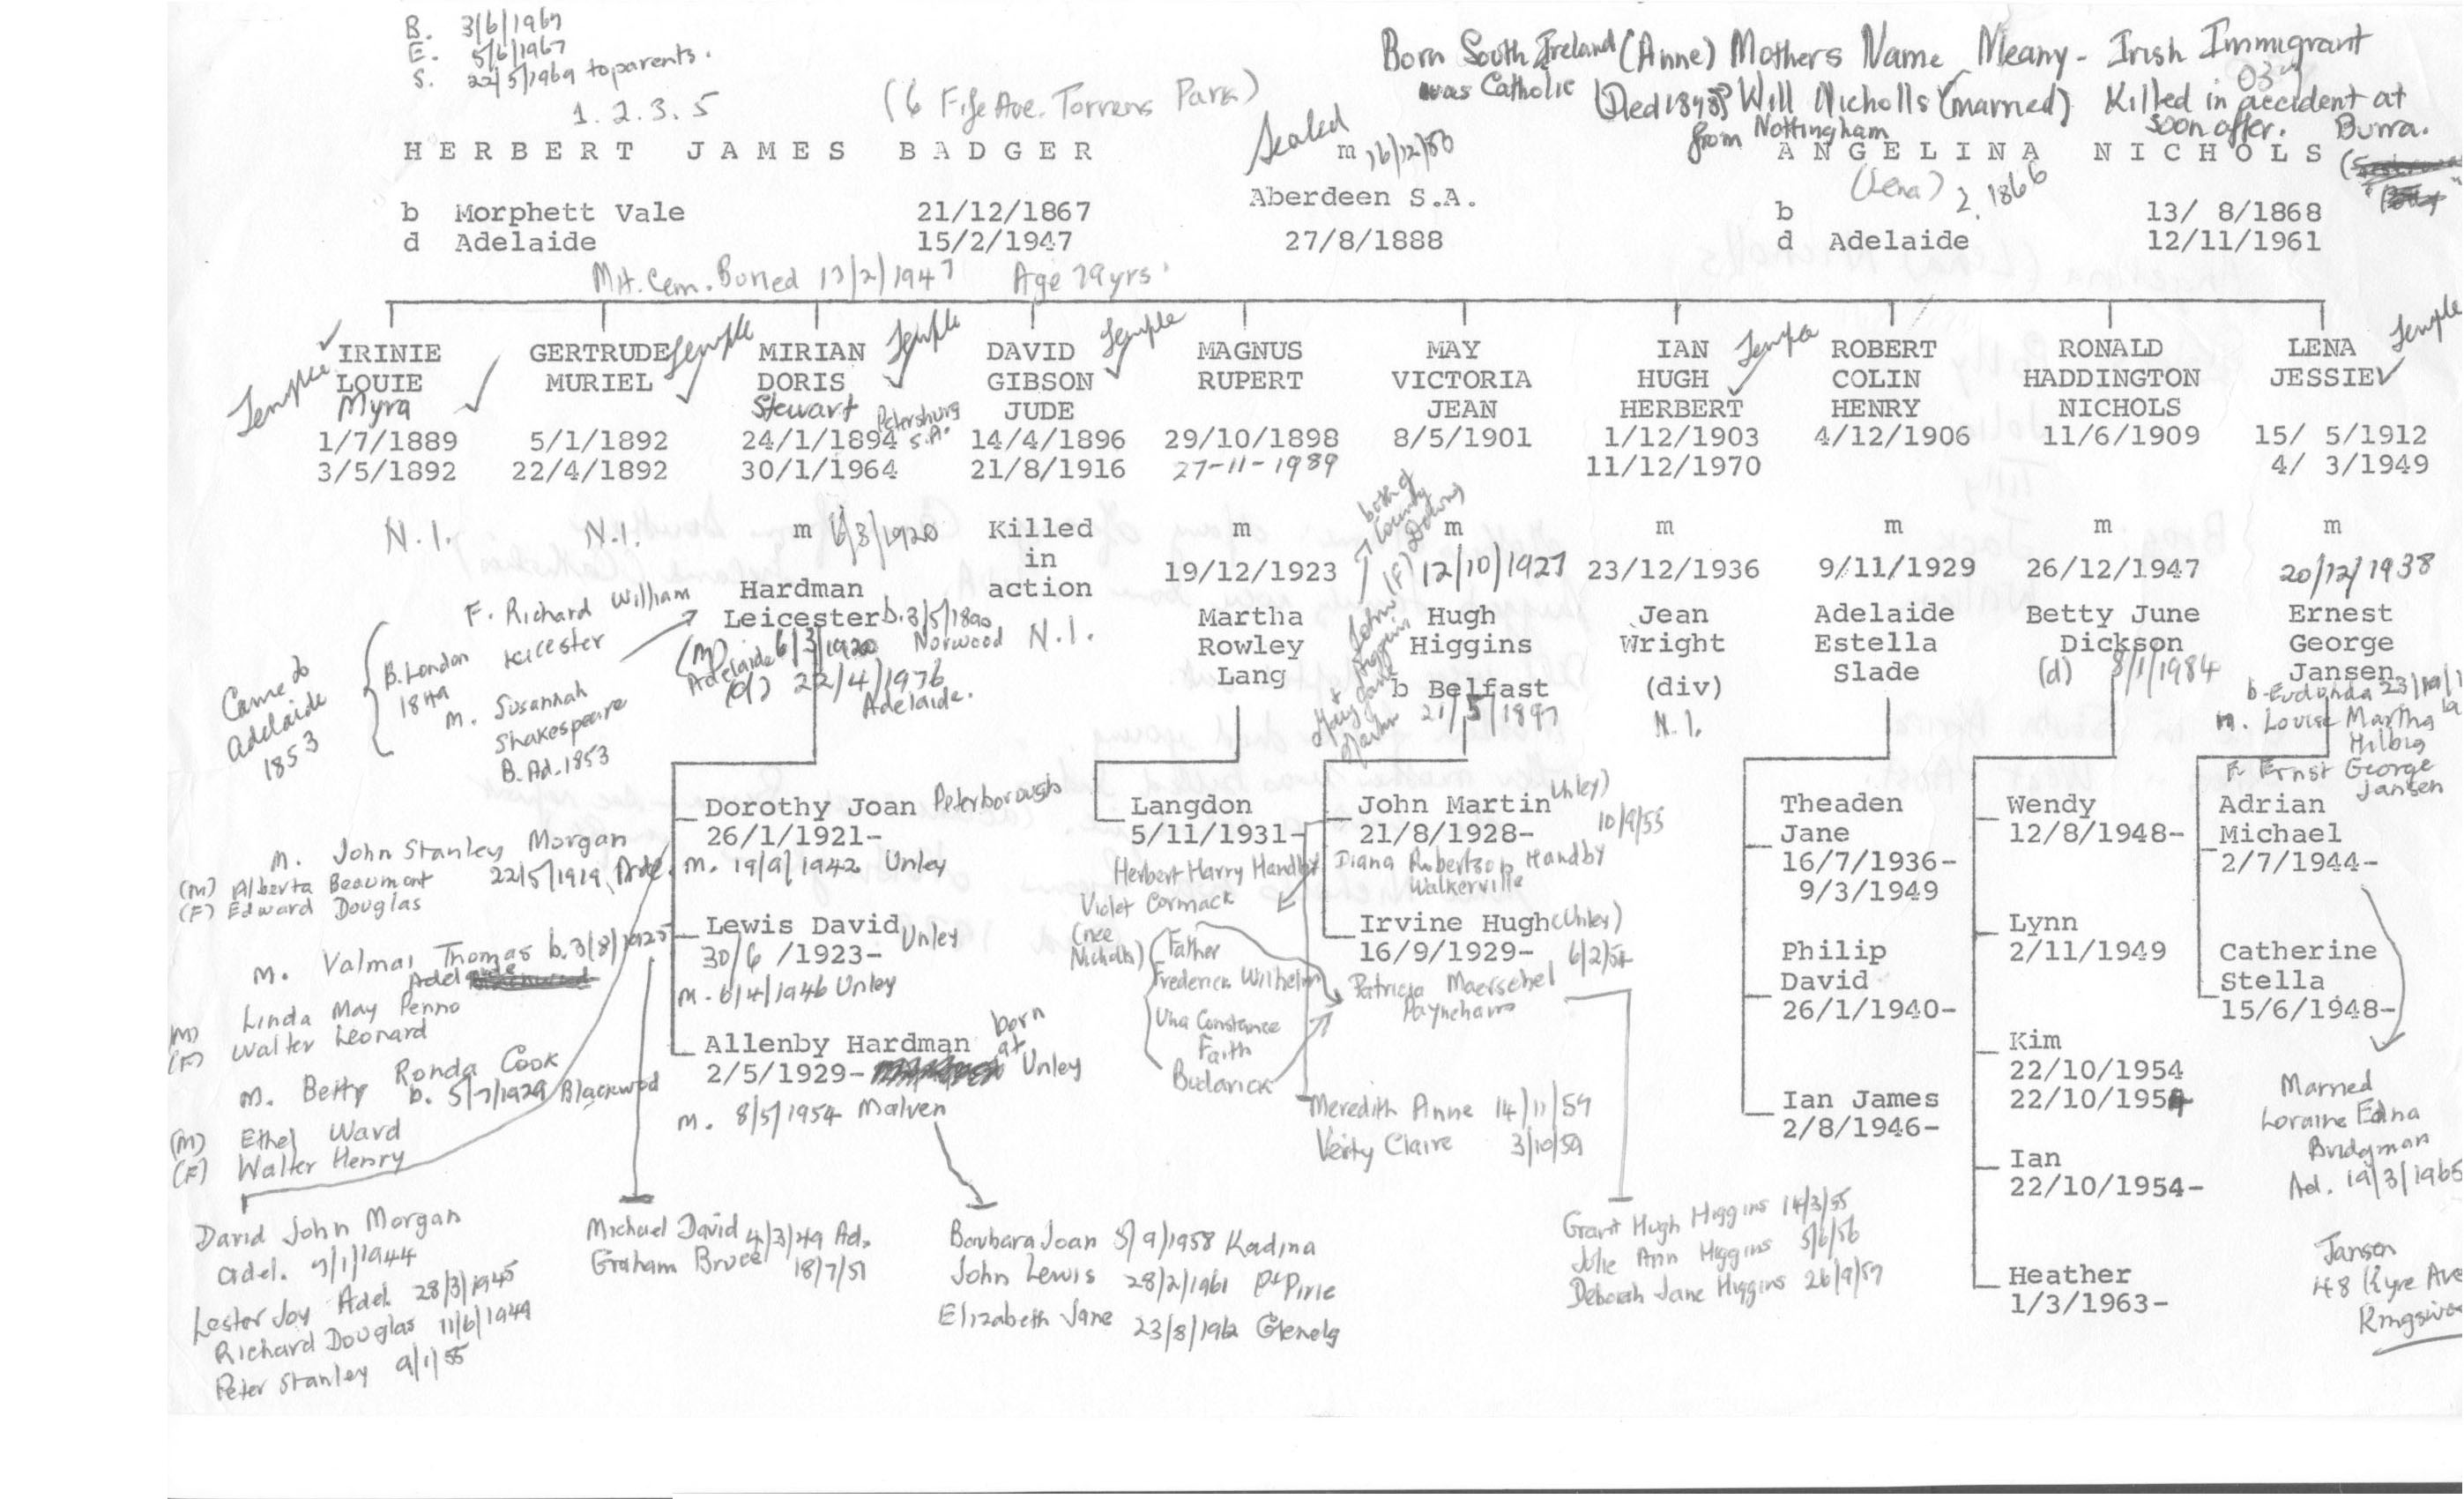 B. 3/6/1967
E. 5/6/1967
S. 22/5/1969 to parents.
1. 2. 3. 5
(6 Fife Ave. Torrens Park)
Born South Ireland (Anne) Mothers Name Meany - Irish Immigrant
was Catholic (Died 1898) Will Nicholls (married) Killed in accident at
from Nottingham soon after. Burra.
HERBERT JAMES BADGER
Sealed
m 16/12/80
ANGELINA NICHOLS
(Lena) 2. 1866
Aberdeen S.A.
b Morphett Vale 21/12/1867
b 13/ 8/1868
d Adelaide 15/2/1947
27/8/1888
d Adelaide 12/11/1961
Mit. Cem. Buried 17/2/1947 Age 79 yrs.
Temple
IRINIE
LOUIE
Myra
1/7/1889
3/5/1892
N.I.
GERTRUDE
MURIEL
Temple
5/1/1892
22/4/1892
N.I.
MIRIAN
DORIS
Stewart
Temple
24/1/1894
Petersburg
S.A.
30/1/1964
m 6/3/1920
Hardman
Leicester b. 3/5/1890
Norwood
(M) 6/3/1920
Adelaide
(d) 22/4/1976
Adelaide.
DAVID
GIBSON
JUDE
Temple
14/4/1896
21/8/1916
Killed
in
action
N.I.
MAGNUS
RUPERT
29/10/1898
27-11-1989
m
19/12/1923
Martha
Rowley
Lang
MAY
VICTORIA
JEAN
8/5/1901
m
12/10/1927
Hugh
Higgins
b Belfast
21/5/1897
both of
County
Down
John (F)
Higgins
+
Mary Jane
IAN
HUGH
HERBERT
Temple
1/12/1903
11/12/1970
m
23/12/1936
Jean
Wright
(div)
N.I.
ROBERT
COLIN
HENRY
4/12/1906
m
9/11/1929
Adelaide
Estella
Slade
RONALD
HADDINGTON
NICHOLS
11/6/1909
m
26/12/1947
Betty June
Dickson
(d) 8/1/1984
LENA
JESSIE
Temple
15/ 5/1912
4/ 3/1949
m
20/12/1938
Ernest
George
Jansen
b. Eudunda
m. Louise Martha
Hilbig
F. Ernst George
Jansen
Came to
Adelaide
1853
F. Richard William
Leicester
B. London
1849
M. Susannah
Shakespeare
B. Ad. 1853
Dorothy Joan Peterborough
26/1/1921-
m. 19/9/1942 Unley
Lewis David Unley
30/6 /1923-
m. 6/4/1946 Unley
Allenby Hardman born
at
2/5/1929- Unley
m. 8/5/1954 Malven
M. John Stanley Morgan
22/5/1919, Adel.
(M) Alberta Beaumont
(F) Edward Douglas
M. Valmai Thomas b. 3/8/1925
Adelaide
(M) Linda May Penno
(F) Walter Leonard
M. Betty Ronda Cook
b. 5/7/1929 Blackwood
(M) Ethel Ward
(F) Walter Henry
David John Morgan
Adel. 7/1/1944
Lester Joy Adel. 28/3/1945
Richard Douglas 11/6/1949
Peter Stanley 9/1/55
Michael David 4/3/49 Ad.
Graham Bruce 18/7/51
Barbara Joan 5/9/1958 Kadina
John Lewis 28/2/1961 Pt Pirie
Elizabeth Jane 23/8/1962 Glenelg
Langdon
5/11/1931-
John Martin Unley)
21/8/1928- 10/9/55
Diana Robertson Handby
Walkerville
Herbert Harry Handby
Violet Cormack
(nee
Nicholls)
Irvine Hugh (Unley)
16/9/1929- 6/2/54
Patricia Maerschel
Payneham
Father
Frederick Wilhelm
Una Constance
Faith
Budarick
Meredith Anne 14/11/59
Verity Claire 3/10/59
Grant Hugh Higgins 14/3/55
Julie Ann Higgins 5/6/56
Deborah Jane Higgins 26/9/57
Theaden
Jane
16/7/1936-
9/3/1949
Philip
David
26/1/1940-
Ian James
2/8/1946-
Wendy
12/8/1948-
Lynn
2/11/1949
Kim
22/10/1954
22/10/1954
Ian
22/10/1954-
Heather
1/3/1963-
Adrian
Michael
2/7/1944-
Catherine
Stella
15/6/1948-
Married
Loraine Edna
Bridgman
Ad. 19/3/1965
Jansen
48 Kyre Ave